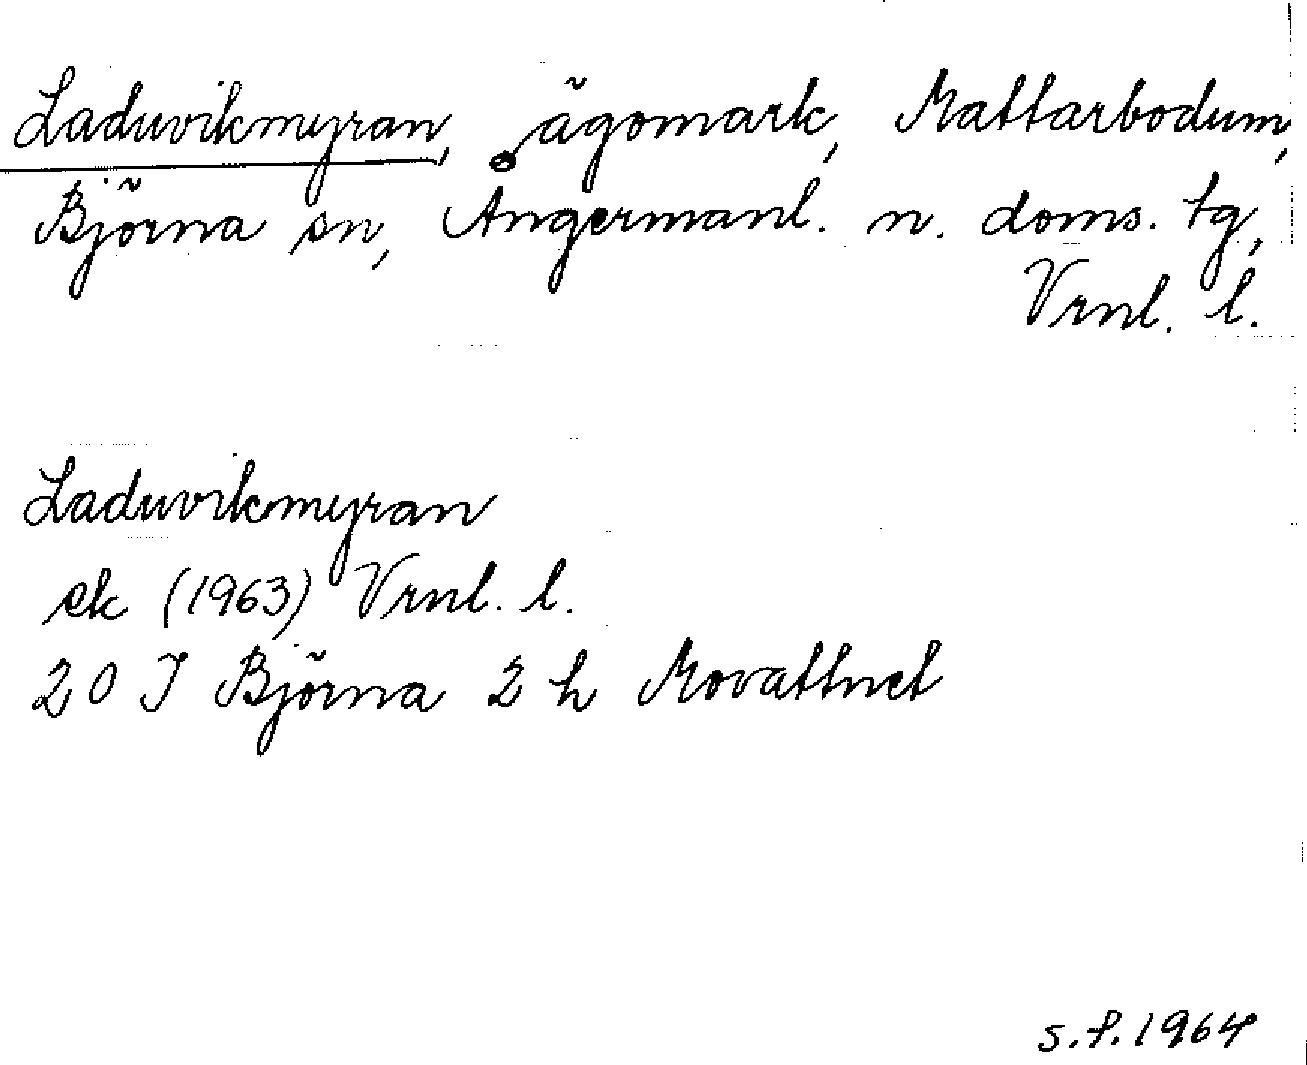 Laduvikmyran, ägomark, Mattarbodum,
Björna sn, Ångermanl. n. doms. tg,
Vrnl. l.
Laduvikmyran
ek (1963) Vrnl. l.
20 I Björna 2 h Movattnet
s.f. 1964